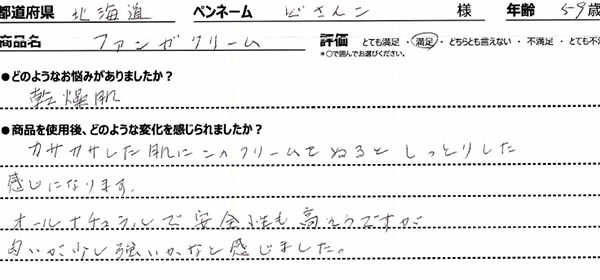 都道府県 北海道 ペンネーム ビさんこ 様 年齢 59歳
商品名 ファンガクリーム 評価 とても満足 ・ 満足 ・ どちらとも言えない ・ 不満足 ・ とても不
*○で囲んでお選びください。
●どのようなお悩みがありましたか？
乾燥肌
●商品を使用後、どのような変化を感じられましたか？
カサカサした肌にこのクリームをぬるとしっとりした
感じになります。
オールナチュラルで安全性も高そうですが
匂いが少し強いかなと感じました。